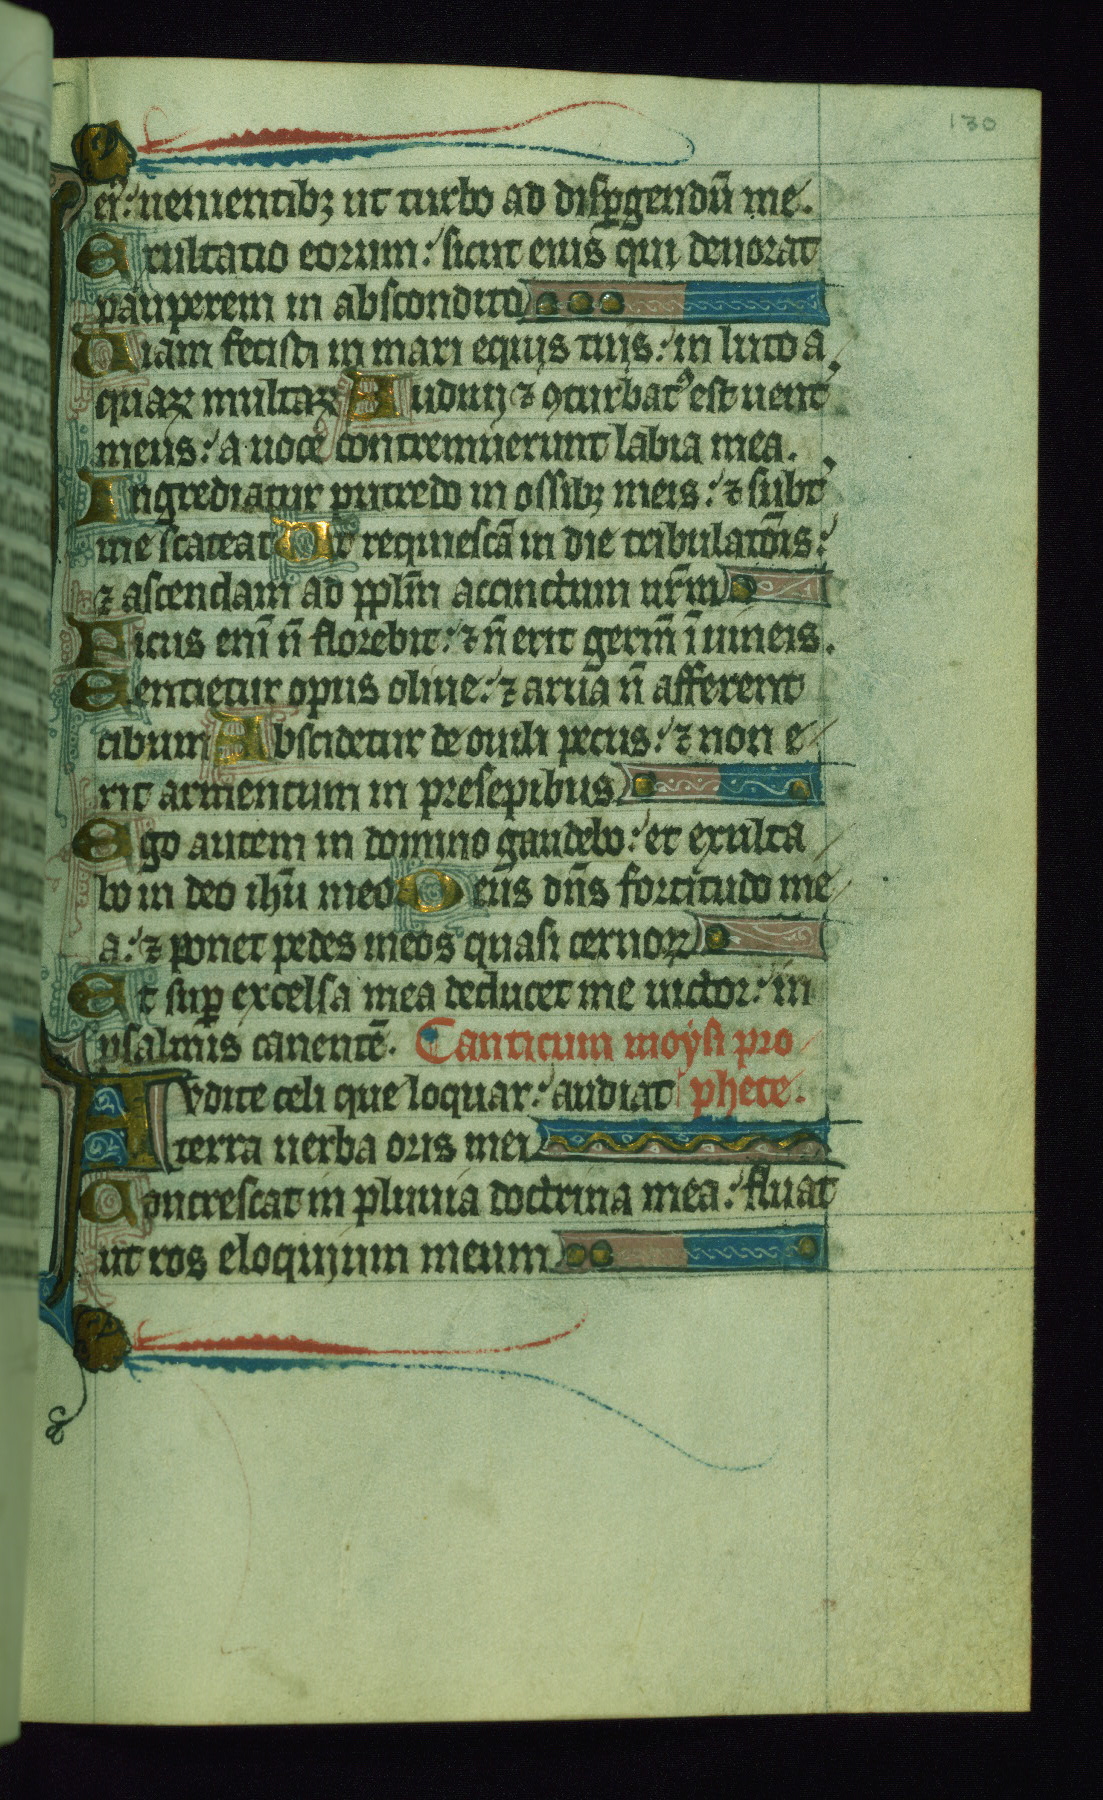 130
ei: uenientibꝫ ut turbo ad disꝑgendū me.
Exultatio eorum: sicut eius qui deuorat
pauperem in abscondito
Uiam fecisti in mari equis tuis: in luto a
quaꝝ multaꝝ Audiui ⁊ ꝯturbatꝰ est uent᷑
meus: a uoce contremuerunt labia mea.
Ingrediatur putredo in ossibꝫ meis: ⁊ subt᷑
me scateat Ut requiescā in die tribulatōis:
⁊ ascendam ad ppl̄m accinctum nr̄m
Ficus enī n̄ florebit: ⁊ n̄ erit germ̄ ī uineis.
Mentietur opus oliue: ⁊ arua n̄ afferent
cibum Abscidetur de ouili pecus: ⁊ non e
rit armentum in presepibus
Ego autem in domino gaudebo: et exulta
bo in deo ihū meo Deus dn̄s fortitudo me
a: ⁊ ponet pedes meos quasi ceruoꝝ
Et suꝑ excelsa mea deducet me uictor: in
psalmis canentē. Canticum moysi pro
Audite celi que loquar: audiat phete.
terra uerba oris mei
Concrescat in pluuia doctrina mea: fluat
ut ros eloquium meum